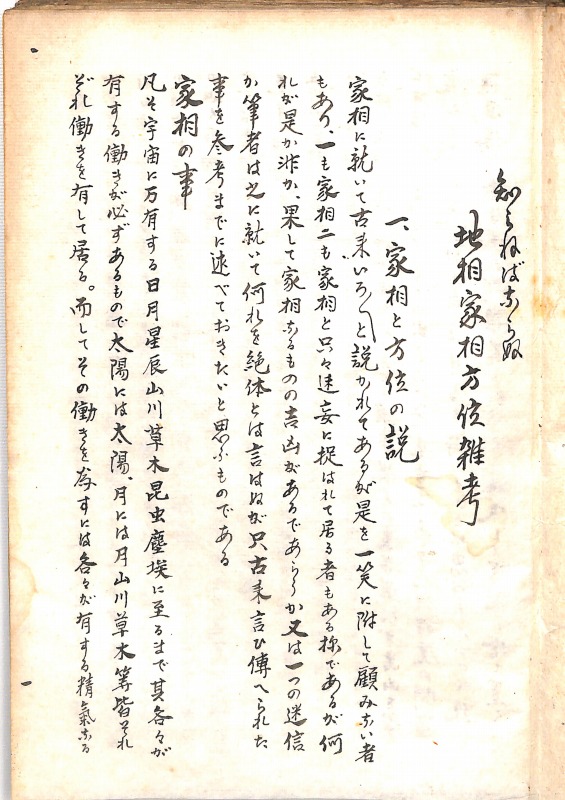 知らねばならぬ
地相家相方位雑考
一、家相と方位の説
家相に就いて古来いろ〳〵と説かれてあるが是を一笑に附して顧みない者
もあり、一も家相二も家相と只々迷妄に捉はれて居る者もある様であるが何
れが是か非か、果して家相なるものの吉凶があるであらうか又は一つの迷信
か筆者は之に就いて何れを絶体とは言はぬが只古来言ひ傳へられた
事を参考までに述べておきたいと思ふものである
家相の事
凡そ宇宙に万有する日月星辰山川草木昆虫塵埃に至るまで其各々が
有する働きが必ずあるもので太陽には太陽、月には月山川草木等皆それ
ぞれ働きを有して居る。而してその働きを為すには各々が有する精氣なる